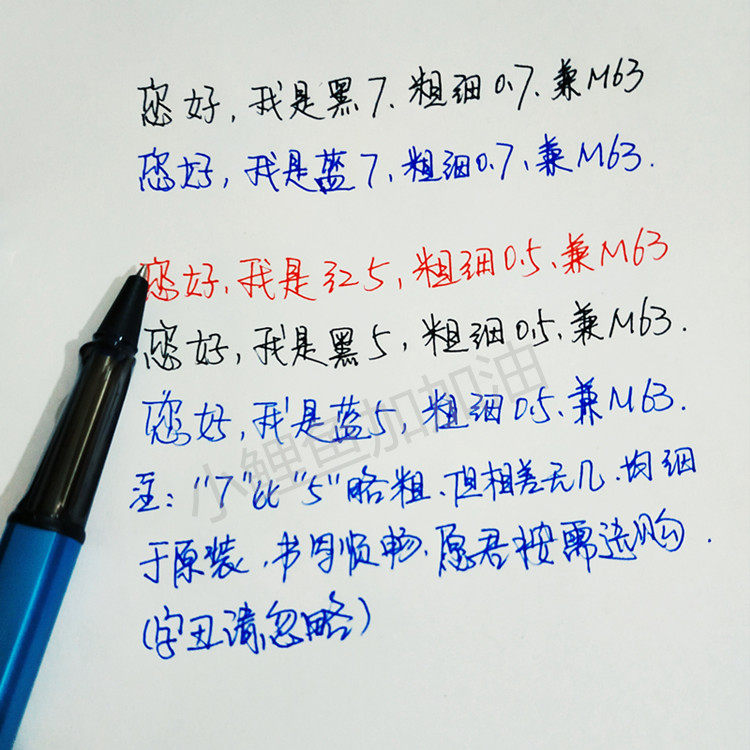 您好,我是黑7、粗细0.7、兼M63
您好,我是蓝7、粗细0.7、兼M63.
您好,我是红5,粗细0.5、兼M63
您好,我是黑5,粗细0.5、兼M63.
您好,我是蓝5,粗细0.5、兼M63.
小鲤鱼加加油
注:"7"比"5"略粗、但相差无几、均细
于原装、书写顺畅、愿君按需选购.
(字丑请忽略)